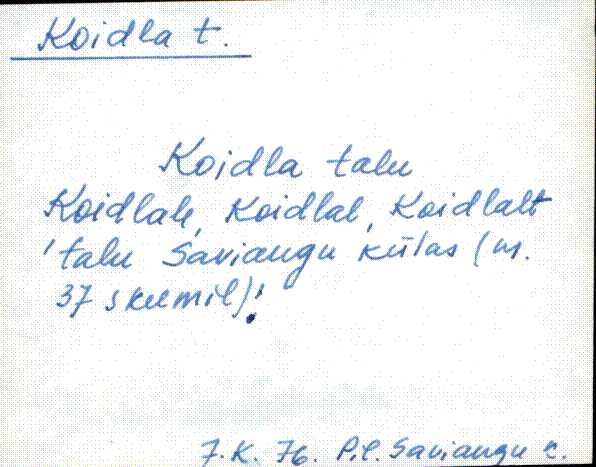 Koidla t.
Koidla talu
Koidlale, Koidlal, Koidlalt
'talu Saviangu külas (nr.
37 skeemil)'.
7.K. 76. Pil. Saviangu k.